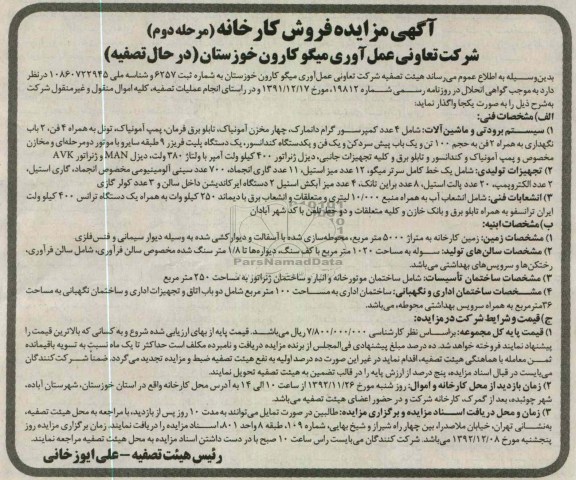 آگهی مزایده فروش کارخانه (مرحله دوم)
شرکت تعاونی عمل آوری میگو کارون خوزستان (در حال تصفیه)
بدین‌وسیله به اطلاع عموم می‌رساند هیئت تصفیه شرکت تعاونی عمل‌آوری میگو کارون خوزستان به شماره ثبت ۶۲۵۷ و شناسه ملی ۱۰۸۶۰۷۲۲۹۴۵ در نظر
دارد به موجب گواهی انحلال در روزنامه رسمی شماره ۱۹۸۱۲، مورخ ۱۳۹۱/۱۲/۱۷ و در راستای انجام عملیات تصفیه، کلیه اموال منقول و غیرمنقول شرکت
به‌شرح ذیل را به صورت یکجا واگذار نماید:
الف) مشخصات فنی:
۱) سیستم برودتی و ماشین‌آلات: شامل ۴ عدد کمپرسور گرام دانمارک، چهار مخزن آمونیاک، تابلو برق فرمان، پمپ آمونیاک، تونل به همراه ۴ فن، ۲ باب
نگهداری به همراه ۲ فن به حجم ۱۰۰ تن و یک باب پیش سردکن و یک فن و یکدستگاه کندانسور، یک دستگاه پلیت فریزر ۹ طبقه سابرو با موتور دومرحله‌ای و مخازن
مخصوص و پمپ آمونیاک و کندانسور و تابلو برق و کلیه تجهیزات جانبی، دیزل ژنراتور ۴۰۰ کیلو ولت آمپر با ولتاژ ۳۸۰ ولت، دیزل MAN و ژنراتور AVK
۲) تجهیزات تولیدی: شامل یک خط کامل سرتر میگو، ۱۲ عدد میز استیل، ۱۱ عدد گاری انجماد، ۷۰۰ عدد سینی آلومینیومی مخصوص انجماد، گاری استیل،
۲ عدد الکتروپمپ، ۲۰ عدد پالت استیل، ۸ عدد براین تانک، ۴ عدد میز آبکش استیل ۲ دستگاه ایرکاندیشن داخل سالن و ۳ عدد کولر گازی
۳) انشعابات فنی: شامل انشعاب آب به همراه منبع ۱۰/۰۰۰ لیتری و متعلقات و انشعاب برق با دیماند ۲۵۰ کیلو وات به همراه یک دستگاه ترانس ۴۰۰ کیلو ولت
ایران ترانسفو به همراه تابلو برق و بانک خازن و کلیه متعلقات و دو خط تلفن با کد شهر آبادان
ب) مشخصات ابنیه:
۱) مشخصات زمین: زمین کارخانه به متراژ ۵۰۰۰ متر مربع، محوطه‌سازی شده با آسفالت و دیوارکشی شده به وسیله دیوار سیمانی و فنس‌فلزی
۲) مشخصات سالن‌های تولید: سوله به مساحت ۱۰۲۰ متر مربع با کف سنگ، دیوارها تا ۱/۸ متر سنگ شده مخصوص سالن فرآوری، شامل سالن فرآوری،
رختکن‌ها و سرویس‌های بهداشتی می‌باشد.
۳) مشخصات ساختمان تأسیسات: شامل ساختمان موتورخانه و انبار و ساختمان ژنراتور به مساحت ۲۵۰ متر مربع
۴) مشخصات ساختمان اداری و نگهبانی: ساختمان اداری به مساحت ۱۰۰ متر مربع شامل دو باب اتاق و تجهیزات اداری و ساختمان نگهبانی به مساحت
۳۶ مترمربع به همراه سرویس بهداشتی محوطه، می‌باشد.
ج) قیمت و شرایط شرکت در مزایده:
۱) قیمت پایه کل مجموعه: براساس نظر کارشناسی ۷/۸۰۰/۰۰۰/۰۰۰ ریال می‌باشد. قیمت پایه از بهای ارزیابی شده شروع و به کسانی که بالاترین قیمت را
پیشنهاد نمایند فروخته خواهد شد. ده درصد مبلغ پیشنهادی فی‌المجلس از برنده مزایده دریافت و نامبرده مکلف است حداکثر تا یک ماه نسبت به تسویه باقیمانده
ثمن معامله با هماهنگی هیئت تصفیه، اقدام نماید در غیر این صورت ده درصد اولیه به نفع هیئت تصفیه ضبط و مزایده تجدید می‌گردد. ضمناً شرکت کنندگان
می‌بایست در قبال اسناد مزایده، پنج درصد از ارزش پایه را در قالب تضمین به هیئت تصفیه تحویل نمایند.
۲) زمان بازدید از محل کارخانه و اموال: روز شنبه مورخ ۱۳۹۲/۱۱/۲۶ از ساعت ۱۰ الی ۱۴ به آدرس محل کارخانه واقع در استان خوزستان، شهرستان آبادان،
شهر چوئبده، بعد از گمرک، کارخانه شرکت و در حضور اعضای هیئت تصفیه می‌باشد.
۳) زمان و محل دریافت اسناد مزایده و برگزاری مزایده: طالبین در صورت تمایل می‌توانند به مدت ۱۰ روز پس از بازدید، با مراجعه به محل هیئت تصفیه،
به‌نشانی تهران، خیابان ملاصدرا، بین چهار راه شیراز و شیخ بهایی، شماره ۱۰۹، طبقه ۸ واحد ۸۰۱، اسناد مزایده را دریافت نمایند. زمان برگزاری مزایده روز
پنجشنبه مورخ ۱۳۹۲/۱۲/۰۸ می‌باشد. شرکت کنندگان می‌بایست راس ساعت ۱۰ صبح با در دست داشتن اسناد مزایده به محل هیئت تصفیه مراجعه نمایند.
رئیس هیئت تصفیه – علی ایوزخانی
ParsNamadData